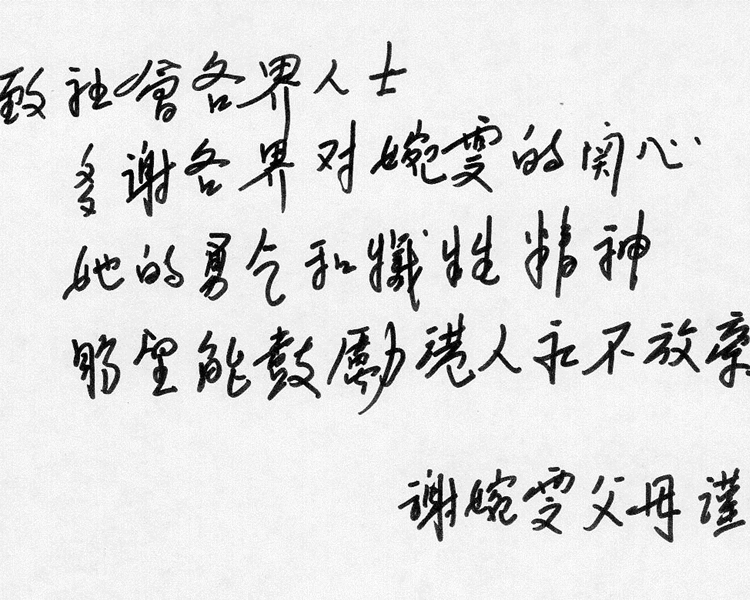 致社會各界人士
多謝各界对婉雯的関心
她的勇气和犠牲精神
盼望能鼓勵港人永不放棄
謝婉雯父母謹